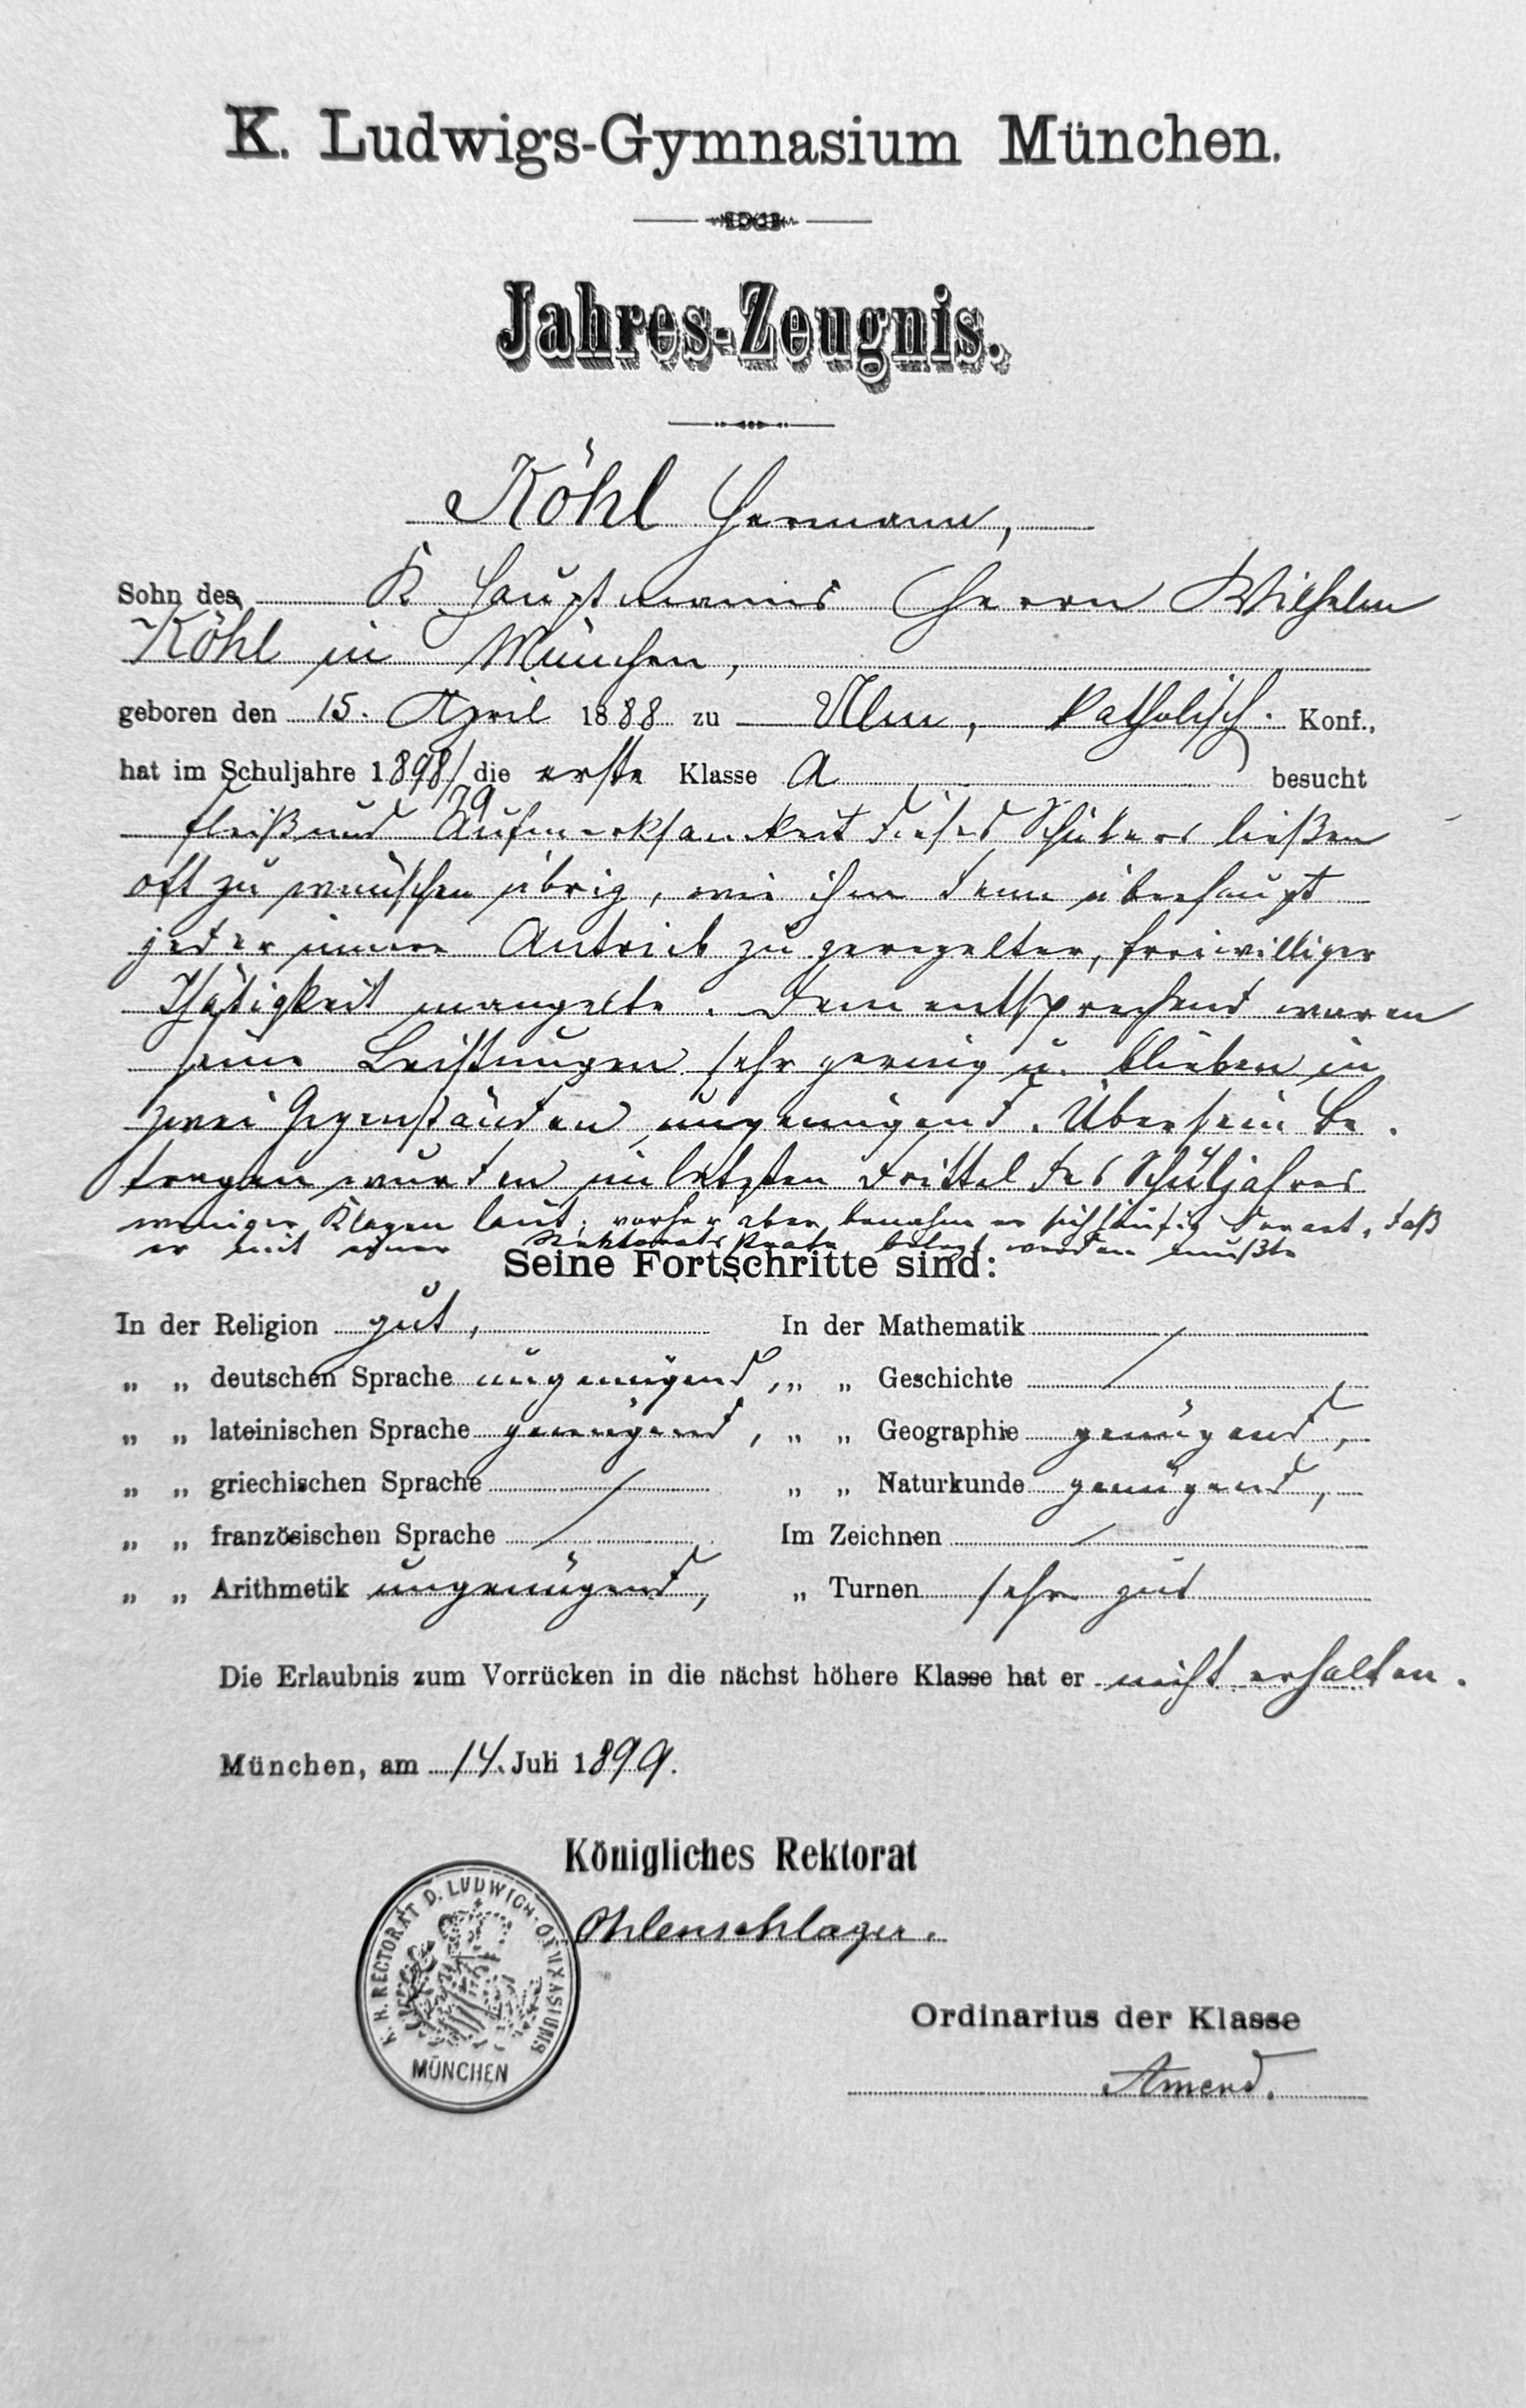 K. Ludwigs-Gymnasium München.
Jahres-Zeugnis.
Köhl Hermann,
Sohn des K. Hauptmanns Herrn Wilhelm
Köhl in München,
geboren den 15. April 1888 zu Ulm, katholisch. Konf.,
hat im Schuljahre 1898/99 die erste Klasse A besucht
Fleiß und Aufmerksamkeit dieses Schülers ließen
oft zu wünschen übrig, wie ihm denn überhaupt
jeder innere Antrieb zu geregelter, freiwilliger
Thätigkeit mangelte. Dementsprechend waren
seine Leistungen sehr gering u. blieben in
zwei Gegenständen ungenügend. Über sein Be-
tragen wurden im letzten Drittel des Schuljahres
weniger Klagen laut; vorher aber benahm er sich häufig derart, daß
er mit einer Rektoratsstrafe belegt werden mußte
Seine Fortschritte sind:
In der Religion gut, In der Mathematik /
„ „ deutschen Sprache ungenügend, „ „ Geschichte /
„ „ lateinischen Sprache genügend, „ „ Geographie genügend,
„ „ griechischen Sprache / „ „ Naturkunde genügend,
„ „ französischen Sprache / Im Zeichnen /
„ „ Arithmetik ungenügend, „ Turnen sehr gut
Die Erlaubnis zum Vorrücken in die nächst höhere Klasse hat er nicht erhalten.
München, am 14. Juli 1899.
Königliches Rektorat
Ohlenschlager.
K. B. RECTORAT D. LUDWIGS-GYMNASIUMS
MÜNCHEN
Ordinarius der Klasse
Amend.